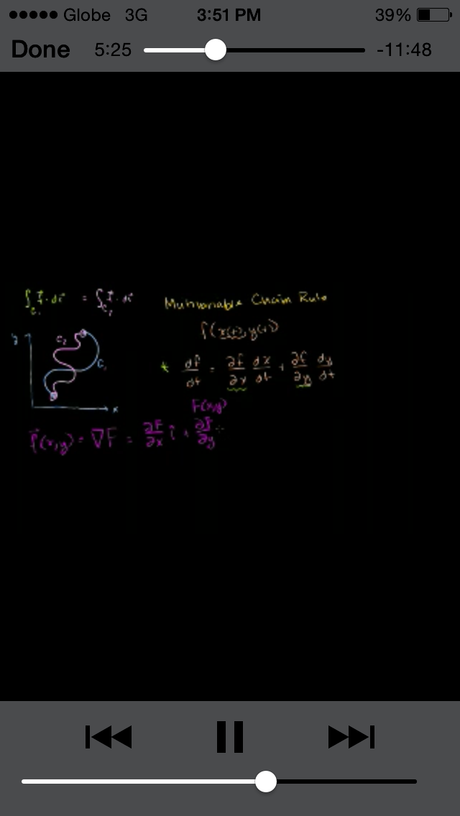 Globe 3G 3:51 PM 39%
Done 5:25 -11:48
∫c₁ f⃗ · dr⃗ = ∫c₂ f⃗ · dr⃗
Multivariable Chain Rule
f(x(t), y(t))
y
C₂
C₁
x
df/dt = ∂f/∂x dx/dt + ∂f/∂y dy/dt
F(x,y)
f⃗(x,y) = ∇F = ∂F/∂x î + ∂F/∂y